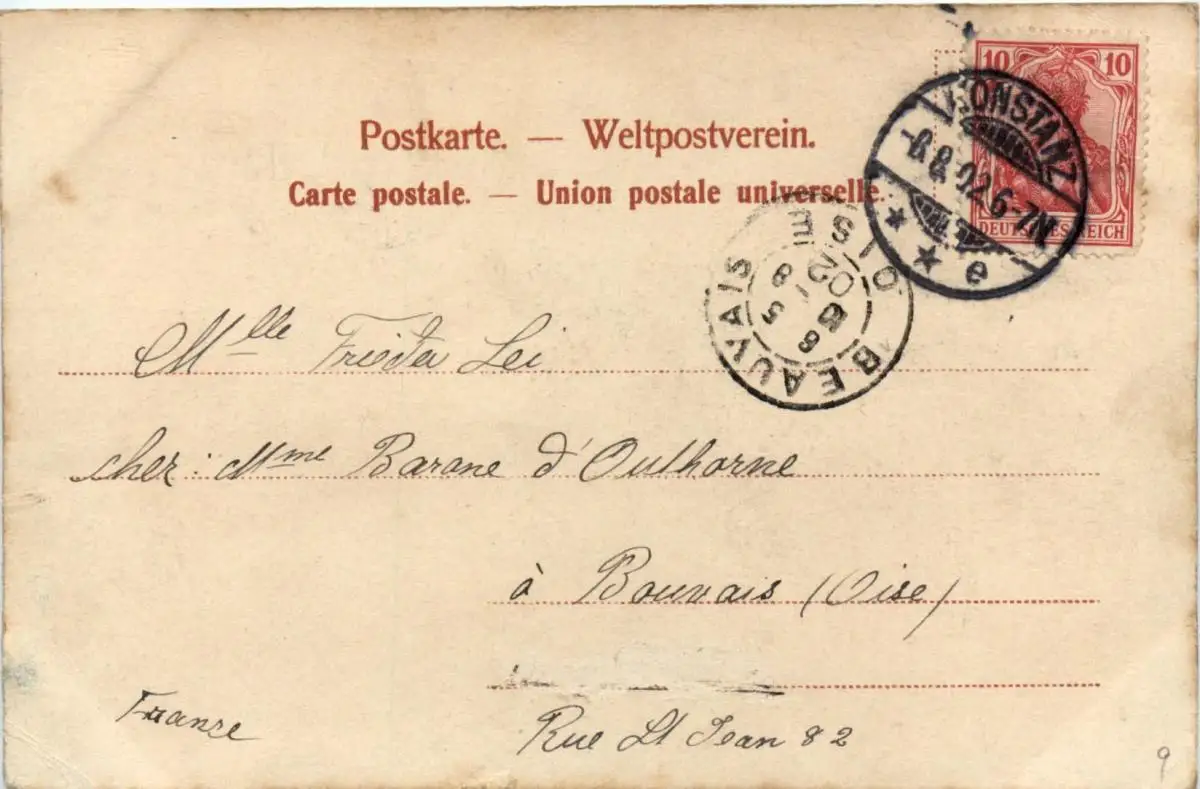 10 10
DEUTSCHES REICH
KONSTANZ
-8.8.02.6-7N
* * e
Postkarte. — Weltpostverein.
Carte postale. — Union postale universelle.
BEAUVAIS OISE
8 02
Mlle Frieda Lei
cher: Mme Barone d'Oulhorne
à Bouvais (Oise)
Rue St Jean 82
Franse
9